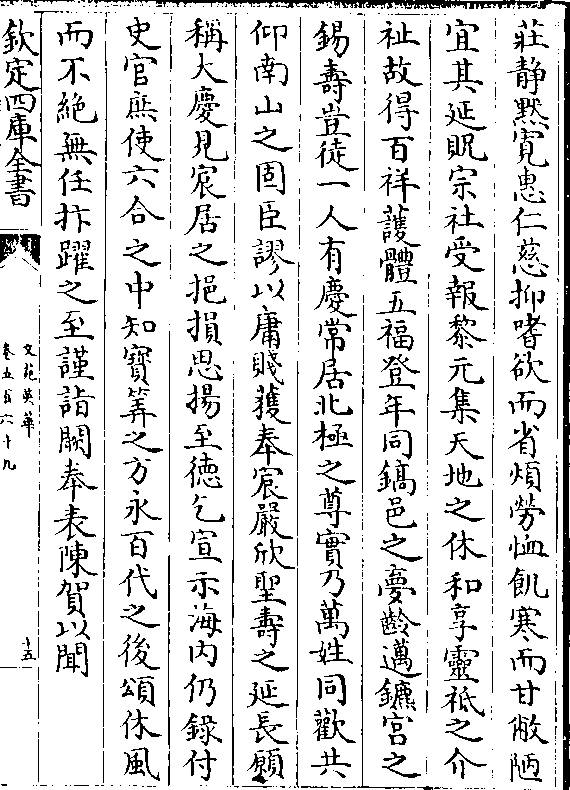 莊静黙寛惠仁慈抑嗜欲而省煩勞恤飢寒而甘敝陋
宜其延貺宗社受報黎元集天地之休和享靈祗之介
祉故得百祥䕶體五福登年同鎬邑之夢齡邁鑣宫之
錫壽豈徒一人有慶常居北極之尊實乃萬姓同歡共
仰南山之固臣謬以庸賤獲奉宸嚴欣聖壽之延長願
稱大慶見宸居之挹損思揚至德乞宣示海内仍録付
史官庶使六合之中知寳筭之方永百代之後頌休風
而不絶無任抃躍之至謹詣闕奉表陳賀以聞
欽定四庫全書
文苑英華
卷五百六十九
十五